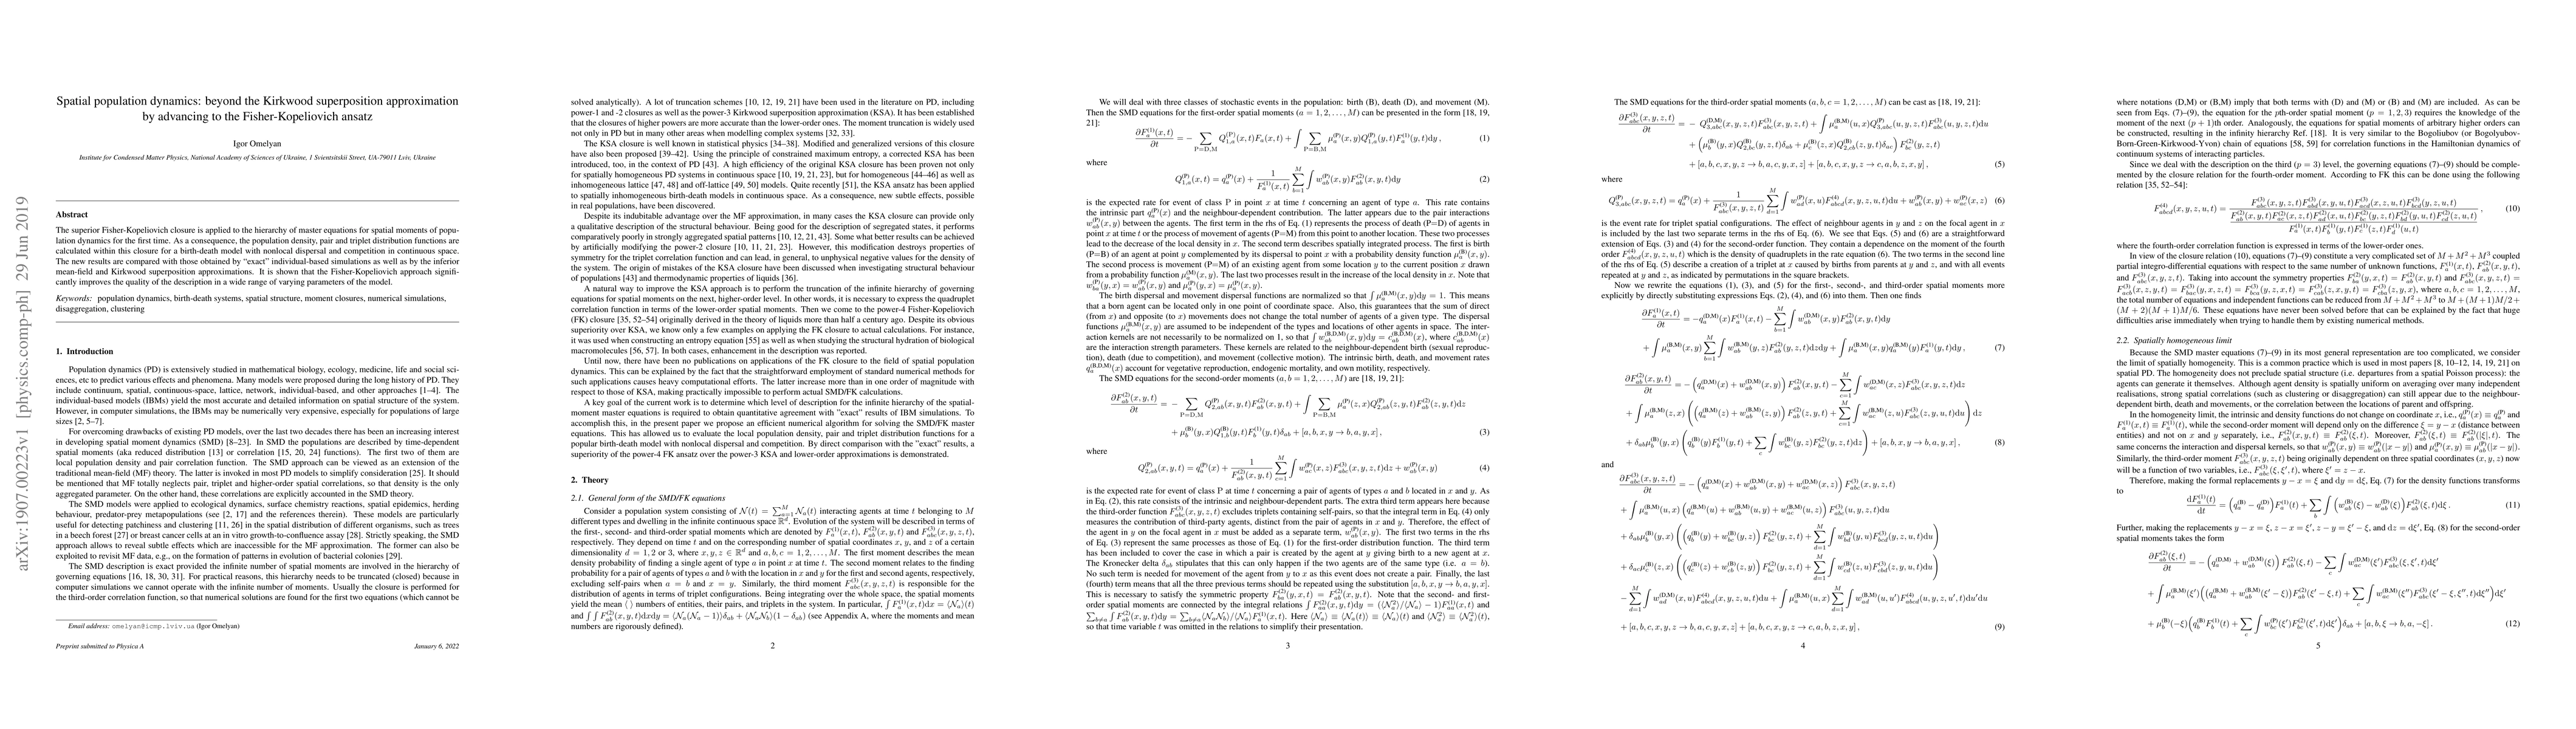 arXiv:1907.00223v1 [physics.comp-ph] 29 Jun 2019
Spatial population dynamics: beyond the Kirkwood superposition approximation
by advancing to the Fisher-Kopeliovich ansatz
Igor Omelyan
Institute for Condensed Matter Physics, National Academy of Sciences of Ukraine, 1 Svientsitskii Street, UA-79011 Lviv, Ukraine
Abstract
The superior Fisher-Kopeliovich closure is applied to the hierarchy of master equations for spatial moments of popu-
lation dynamics for the first time. As a consequence, the population density, pair and triplet distribution functions are
calculated within this closure for a birth-death model with nonlocal dispersal and competition in continuous space.
The new results are compared with those obtained by "exact" individual-based simulations as well as by the inferior
mean-field and Kirkwood superposition approximations. It is shown that the Fisher-Kopeliovich approach signifi-
cantly improves the quality of the description in a wide range of varying parameters of the model.
Keywords: population dynamics, birth-death systems, spatial structure, moment closures, numerical simulations,
disaggregation, clustering
1. Introduction
Population dynamics (PD) is extensively studied in mathematical biology, ecology, medicine, life and social sci-
ences, etc to predict various effects and phenomena. Many models were proposed during the long history of PD. They
include continuum, spatial, continuous-space, lattice, network, individual-based, and other approaches [1–4]. The
individual-based models (IBMs) yield the most accurate and detailed information on spatial structure of the system.
However, in computer simulations, the IBMs may be numerically very expensive, especially for populations of large
sizes [2, 5–7].
For overcoming drawbacks of existing PD models, over the last two decades there has been an increasing interest
in developing spatial moment dynamics (SMD) [8–23]. In SMD the populations are described by time-dependent
spatial moments (aka reduced distribution [13] or correlation [15, 20, 24] functions). The first two of them are
local population density and pair correlation function. The SMD approach can be viewed as an extension of the
traditional mean-field (MF) theory. The latter is invoked in most PD models to simplify consideration [25]. It should
be mentioned that MF totally neglects pair, triplet and higher-order spatial correlations, so that density is the only
aggregated parameter. On the other hand, these correlations are explicitly accounted in the SMD theory.
The SMD models were applied to ecological dynamics, surface chemistry reactions, spatial epidemics, herding
behaviour, predator-prey metapopulations (see [2, 17] and the references therein). These models are particularly
useful for detecting patchiness and clustering [11, 26] in the spatial distribution of different organisms, such as trees
in a beech forest [27] or breast cancer cells at an in vitro growth-to-confluence assay [28]. Strictly speaking, the SMD
approach allows to reveal subtle effects which are inaccessible for the MF approximation. The former can also be
exploited to revisit MF data, e.g., on the formation of patterns in evolution of bacterial colonies [29].
The SMD description is exact provided the infinite number of spatial moments are involved in the hierarchy of
governing equations [16, 18, 30, 31]. For practical reasons, this hierarchy needs to be truncated (closed) because in
computer simulations we cannot operate with the infinite number of moments. Usually the closure is performed for
the third-order correlation function, so that numerical solutions are found for the first two equations (which cannot be
Email address: omelyan@icmp.lviv.ua (Igor Omelyan)
Preprint submitted to Physica A
January 6, 2022
solved analytically). A lot of truncation schemes [10, 12, 19, 21] have been used in the literature on PD, including
power-1 and -2 closures as well as the power-3 Kirkwood superposition approximation (KSA). It has been established
that the closures of higher powers are more accurate than the lower-order ones. The moment truncation is widely used
not only in PD but in many other areas when modelling complex systems [32, 33].
The KSA closure is well known in statistical physics [34–38]. Modified and generalized versions of this closure
have also been proposed [39–42]. Using the principle of constrained maximum entropy, a corrected KSA has been
introduced, too, in the context of PD [43]. A high efficiency of the original KSA closure has been proven not only
for spatially homogeneous PD systems in continuous space [10, 19, 21, 23], but for homogeneous [44–46] as well as
inhomogeneous lattice [47, 48] and off-lattice [49, 50] models. Quite recently [51], the KSA ansatz has been applied
to spatially inhomogeneous birth-death models in continuous space. As a consequence, new subtle effects, possible
in real populations, have been discovered.
Despite its indubitable advantage over the MF approximation, in many cases the KSA closure can provide only
a qualitative description of the structural behaviour. Being good for the description of segregated states, it performs
comparatively poorly in strongly aggregated spatial patterns [10, 12, 21, 43]. Some what better results can be achieved
by artificially modifying the power-2 closure [10, 11, 21, 23]. However, this modification destroys properties of
symmetry for the triplet correlation function and can lead, in general, to unphysical negative values for the density of
the system. The origin of mistakes of the KSA closure have been discussed when investigating structural behaviour
of populations [43] and thermodynamic properties of liquids [36].
A natural way to improve the KSA approach is to perform the truncation of the infinite hierarchy of governing
equations for spatial moments on the next, higher-order level. In other words, it is necessary to express the quadruplet
correlation function in terms of the lower-order spatial moments. Then we come to the power-4 Fisher-Kopeliovich
(FK) closure [35, 52–54] originally derived in the theory of liquids more than half a century ago. Despite its obvious
superiority over KSA, we know only a few examples on applying the FK closure to actual calculations. For instance,
it was used when constructing an entropy equation [55] as well as when studying the structural hydration of biological
macromolecules [56, 57]. In both cases, enhancement in the description was reported.
Until now, there have been no publications on applications of the FK closure to the field of spatial population
dynamics. This can be explained by the fact that the straightforward employment of standard numerical methods for
such applications causes heavy computational efforts. The latter increase more than in one order of magnitude with
respect to those of KSA, making practically impossible to perform actual SMD/FK calculations.
A key goal of the current work is to determine which level of description for the infinite hierarchy of the spatial-
moment master equations is required to obtain quantitative agreement with "exact" results of IBM simulations. To
accomplish this, in the present paper we propose an efficient numerical algorithm for solving the SMD/FK master
equations. This has allowed us to evaluate the local population density, pair and triplet distribution functions for a
popular birth-death model with nonlocal dispersal and competition. By direct comparison with the "exact" results, a
superiority of the power-4 FK ansatz over the power-3 KSA and lower-order approximations is demonstrated.
2. Theory
2.1. General form of the SMD/FK equations
Consider a population system consisting of N(t) = ∑_{a=1}^M N_a(t) interacting agents at time t belonging to M
different types and dwelling in the infinite continuous space ℝ^d. Evolution of the system will be described in terms of
the first-, second- and third-order spatial moments which are denoted by F_a^(1)(x, t), F_ab^(2)(x, y, t) and F_abc^(3)(x, y, z, t),
respectively. They depend on time t and on the corresponding number of spatial coordinates x, y, and z of a certain
dimensionality d = 1, 2 or 3, where x, y, z ∈ ℝ^d and a, b, c = 1, 2, . . . , M. The first moment describes the mean
density probability of finding a single agent of type a in point x at time t. The second moment relates to the finding
probability for a pair of agents of types a and b with the location in x and y for the first and second agents, respectively,
excluding self-pairs when a = b and x = y. Similarly, the third moment F_abc^(3)(x, y, z, t) is responsible for the
distribution of agents in terms of triplet configurations. Being integrated over the whole space, the spatial moments
yield the mean ⟨ ⟩ numbers of entities, their pairs, and triplets in the system. In particular, ∫ F_a^(1)(x, t)dx = ⟨N_a⟩(t)
and ∫∫ F_ab^(2)(x, y, t)dxdy = ⟨N_a(N_a − 1)⟩δ_ab + ⟨N_aN_b⟩(1 − δ_ab) (see Appendix A, where the moments and mean
numbers are rigorously defined).
2
We will deal with three classes of stochastic events in the population: birth (B), death (D), and movement (M).
Then the SMD equations for the first-order spatial moments (a = 1, 2, . . . , M) can be presented in the form [18, 19,
21]:
∂F_a^(1)(x, t)/∂t = − ∑_{P=D,M} Q_{1,a}^(P)(x, t)F_a(x, t) + ∫ ∑_{P=D,M} μ_a^(P)(x, y)Q_{1,a}^(P)(y, t)F_a^(1)(y, t)dy , (1)
where
Q_{1,a}^(P)(x, t) = q_a^(P)(x) + 1/F_a^(1)(x, t) ∑_{b=1}^M ∫ w_ab^(P)(x, y)F_ab^(2)(x, y, t)dy (2)
is the expected rate for event of class P in point x at time t concerning an agent of type a. This rate contains
the intrinsic part q_a^(P)(x) and the neighbour-dependent contribution. The latter appears due to the pair interactions
w_ab^(P)(x, y) between the agents. The first term in the rhs of Eq. (1) represents the process of death (P=D) of agents in
point x at time t or the process of movement of agents (P=M) from this point to another location. These two processes
lead to the decrease of the local density in x. The second term describes spatially integrated process. The first is birth
(P=B) of an agent at point y complemented by its dispersal to point x with a probability density function μ_a^(B)(x, y).
The second process is movement (P=M) of an existing agent from some location y to the current position x drawn
from a probability function μ_a^(M)(x, y). The last two processes result in the increase of the local density in x. Note that
w_ba^(P)(y, x) = w_ab^(P)(x, y) and μ_a^(P)(y, x) = μ_a^(P)(x, y).
The birth dispersal and movement dispersal functions are normalized so that ∫ μ_a^(B,M)(x, y)dy = 1. This means
that a born agent can be located only in one point of coordinate space. Also, this guarantees that the sum of direct
(from x) and opposite (to x) movements does not change the total number of agents of a given type. The dispersal
functions μ_a^(B,M)(x, y) are assumed to be independent of the types and locations of other agents in space. The inter-
action kernels are not necessarily to be normalized on 1, so that ∫ w_ab^(B,D,M)(x, y)dy = c_ab^(B,D,M)(x), where c_ab^(B,D,M)(x)
are the interaction strength parameters. These kernels are related to the neighbour-dependent birth (sexual reproduc-
tion), death (due to competition), and movement (collective motion). The intrinsic birth, death, and movement rates
q_a^(B,D,M)(x) account for vegetative reproduction, endogenic mortality, and own motility, respectively.
The SMD equations for the second-order moments (a, b = 1, 2, . . . , M) are [18, 19, 21]:
∂F_ab^(2)(x, y, t)/∂t = − ∑_{P=D,M} Q_{2,ab}^(P)(x, y, t)F_ab^(2)(x, y, t) + ∫ ∑_{P=D,M} μ_a^(P)(z, x)Q_{2,ab}^(P)(z, y, t)F_ab^(2)(z, y, t)dz
+ μ_b^(B)(y, x)Q_{1,b}^(B)(y, t)F_b^(1)(y, t)δ_ab + [a, b, x, y → b, a, y, x] , (3)
where
Q_{2,ab}^(P)(x, y, t) = q_a^(P)(x) + 1/F_ab^(2)(x, y, t) ∑_{c=1}^M ∫ w_ac^(P)(x, z)F_abc^(3)(x, y, z, t)dz + w_ab^(P)(x, y) (4)
is the expected rate for event of class P at time t concerning a pair of agents of types a and b located in x and y. As
in Eq. (2), this rate consists of the intrinsic and neighbour-dependent parts. The extra third term appears here because
the third-order function F_abc^(3)(x, y, z, t) excludes triplets containing self-pairs, so that the integral term in Eq. (4) only
measures the contribution of third-party agents, distinct from the pair of agents in x and y. Therefore, the effect of
the agent in y on the focal agent in x must be added as a separate term, w_ab^(P)(x, y). The first two terms in the rhs
of Eq. (3) represent the same processes as those of Eq. (1) for the first-order distribution function. The third term
has been included to cover the case in which a pair is created by the agent at y giving birth to a new agent at x.
The Kronecker delta δ_ab stipulates that this can only happen if the two agents are of the same type (i.e. a = b).
No such term is needed for movement of the agent from y to x as this event does not create a pair. Finally, the last
(fourth) term means that all the three previous terms should be repeated using the substitution [a, b, x, y → b, a, y, x].
This is necessary to satisfy the symmetric property F_ba^(2)(y, x, t) = F_ab^(2)(x, y, t). Note that the second- and first-
order spatial moments are connected by the integral relations ∫ F_aa^(2)(x, y, t)dy = (⟨N_a^2⟩/⟨N_a⟩ − 1)F_a^(1)(x, t) and
∑_{b≠a} ∫ F_ab^(2)(x, y, t)dy = ∑_{b≠a} ⟨N_aN_b⟩/⟨N_a⟩F_a^(1)(x, t). Here ⟨N_a⟩ ≡ ⟨N_a(t)⟩ ≡ ⟨N_a⟩(t) and ⟨N_a^2⟩ ≡ ⟨N_a^2⟩(t),
so that time variable t was omitted in the relations to simplify their presentation.
3
The SMD equations for the third-order spatial moments (a, b, c = 1, 2, . . . , M) can be cast as [18, 19, 21]:
∂F_abc^(3)(x, y, z, t)/∂t = − Q_{3,abc}^(D,M)(x, y, z, t)F_abc^(3)(x, y, z, t) + ∫ μ_a^(B,M)(u, x)Q_{3,abc}^(P)(u, y, z, t)F_abc^(3)(u, y, z, t)du
+ (μ_b^(B)(y, x)Q_{2,bc}^(B)(y, z, t)δ_ab + μ_c^(B)(z, x)Q_{2,cb}^(B)(z, y, t)δ_ac) F_bc^(2)(y, z, t)
+ [a, b, c, x, y, z → b, a, c, y, x, z] + [a, b, c, x, y, z → c, a, b, z, x, y] , (5)
where
Q_{3,abc}^(P)(x, y, z, t) = q_a^(P)(x) + 1/F_abc^(3)(x, y, z, t) ∑_{d=1}^M ∫ w_ad^(P)(x, u)F_abcd^(4)(x, y, z, u, t)du + w_ab^(P)(x, y) + w_ac^(P)(x, z) (6)
is the event rate for triplet spatial configurations. The effect of neighbour agents in y and z on the focal agent in x
is included by the last two separate terms in the rhs of Eq. (6). We see that Eqs. (5) and (6) are a straightforward
extension of Eqs. (3) and (4) for the second-order function. They contain a dependence on the moment of the fourth
order F_abcd^(4)(x, y, z, u, t) which is the density of quadruplets in the rate equation (6). The two terms in the second line
of the rhs of Eq. (5) describe a creation of a triplet at x caused by births from parents at y and z, and with all events
repeated at y and z, as indicated by permutations in the square brackets.
Now we rewrite the equations (1), (3), and (5) for the first-, second-, and third-order spatial moments more
explicitly by directly substituting expressions Eqs. (2), (4), and (6) into them. Then one finds
∂F_a^(1)(x, t)/∂t = −q_a^(D,M)(x)F_a^(1)(x, t) − ∑_{b=1}^M ∫ w_ab^(D,M)(x, y)F_ab^(2)(x, y, t)dy
+ ∫ μ_a^(B,M)(x, y) ∑_{b=1}^M ∫ w_ab^(B,M)(y, z)F_ab^(2)(y, z, t)dzdy + ∫ μ_a^(B,M)(x, y)q_a^(B,M)(y)F_a^(1)(y, t)dy , (7)
∂F_ab^(2)(x, y, t)/∂t = −(q_a^(D,M)(x) + w_ab^(D,M)(x, y)) F_ab^(2)(x, y, t) − ∑_{c=1}^M ∫ w_ac^(D,M)(x, z)F_abc^(3)(x, y, z, t)dz
+ ∫ μ_a^(B,M)(z, x) ((q_a^(B,M)(z) + w_ab^(B,M)(z, y)) F_ab^(2)(z, y, t) + ∑_{c=1}^M ∫ w_ac^(B,M)(z, u)F_abc^(3)(z, y, u, t)du) dz
+ δ_ab μ_b^(B)(y, x) (q_b^(B)(y)F_b^(1)(y, t) + ∑_c ∫ w_bc^(B)(y, z)F_bc^(2)(y, z, t)dz) + [a, b, x, y → b, a, y, x] , (8)
and
∂F_abc^(3)(x, y, z, t)/∂t = −(q_a^(D,M)(x) + w_ab^(D,M)(x, y) + w_ac^(D,M)(x, z)) F_abc^(3)(x, y, z, t)
+ ∫ μ_a^(B,M)(u, x) (q_a^(B,M)(u) + w_ab^(B,M)(u, y) + w_ac^(B,M)(u, z)) F_abc^(3)(u, y, z, t)du
+ δ_ab μ_b^(B)(y, x) ((q_b^(B)(y) + w_bc^(B)(y, z)) F_bc^(2)(y, z, t) + ∑_{d=1}^M ∫ w_bd^(B)(y, u)F_bcd^(3)(y, z, u, t)du)
+ δ_ac μ_c^(B)(z, x) ((q_c^(B)(z) + w_cb^(B)(z, y)) F_bc^(2)(y, z, t) + ∑_{d=1}^M ∫ w_cd^(B)(z, u)F_cbd^(3)(z, y, u, t)du)
− ∑_{d=1}^M ∫ w_ad^(D,M)(x, u)F_abcd^(4)(x, y, z, u, t)du + ∫ μ_a^(B,M)(u, x) ∑_{d=1}^M ∫ w_ad^(B,M)(u, u′)F_abcd^(4)(u, y, z, u′, t)du′du
+ [a, b, c, x, y, z → b, a, c, y, x, z] + [a, b, c, x, y, z → c, a, b, z, x, y] , (9)
4
where notations (D,M) or (B,M) imply that both terms with (D) and (M) or (B) and (M) are included. As can be
seen from Eqs. (7)–(9), the equation for the pth-order spatial moment (p = 1, 2, 3) requires the knowledge of the
moment of the next (p + 1)th order. Analogously, the equations for spatial moments of arbitrary higher orders can
be constructed, resulting in the infinite hierarchy Ref. [18]. It is very similar to the Bogoliubov (or Bogolyubov-
Born-Green-Kirkwood-Yvon) chain of equations [58, 59] for correlation functions in the Hamiltonian dynamics of
continuum systems of interacting particles.
Since we deal with the description on the third (p = 3) level, the governing equations (7)–(9) should be comple-
mented by the closure relation for the fourth-order moment. According to FK this can be done using the following
relation [35, 52–54]:
F_abcd^(4)(x, y, z, u, t) = F_abc^(3)(x, y, z, t)F_abd^(3)(x, y, u, t)F_acd^(3)(x, z, u, t)F_bcd^(3)(y, z, u, t) / [F_ab^(2)(x, y, t)F_ac^(2)(x, z, t)F_ad^(2)(x, u, t)F_bc^(2)(y, z, t)F_bd^(2)(y, u, t)F_cd^(2)(z, u, t) / F_a^(1)(x, t)F_b^(1)(y, t)F_c^(1)(z, t)F_d^(1)(u, t)] , (10)
where the fourth-order correlation function is expressed in terms of the lower-order ones.
In view of the closure relation (10), equations (7)–(9) constitute a very complicated set of M + M^2 + M^3 coupled
partial integro-differential equations with respect to the same number of unknown functions, F_a^(1)(x, t), F_ab^(2)(x, y, t),
and F_abc^(3)(x, y, z, t). Taking into account the symmetry properties F_ba^(2)(y, x, t) = F_ab^(2)(x, y, t) and F_abc^(3)(x, y, z, t) =
F_acb^(3)(x, z, y, t) = F_bac^(3)(y, x, z, t) = F_bca^(3)(y, z, x, t) = F_cab^(3)(z, x, y, t) = F_cba^(3)(z, y, x), where a, b, c = 1, 2, . . . , M,
the total number of equations and independent functions can be reduced from M + M^2 + M^3 to M + (M + 1)M/2 +
(M + 2)(M + 1)M/6. These equations have never been solved before that can be explained by the fact that huge
difficulties arise immediately when trying to handle them by existing numerical methods.
2.2. Spatially homogeneous limit
Because the SMD master equations (7)–(9) in its most general representation are too complicated, we consider
the limit of spatially homogeneity. This is a common practice which is used in most papers [8, 10–12, 14, 19, 21] on
spatial PD. The homogeneity does not preclude spatial structure (i.e. departures from a spatial Poisson process): the
agents can generate it themselves. Although agent density is spatially uniform on averaging over many independent
realisations, strong spatial correlations (such as clustering or disaggregation) can still appear due to the neighbour-
dependent birth, death and movements, or the correlation between the locations of parent and offspring.
In the homogeneity limit, the intrinsic and density functions do not change on coordinate x, i.e., q_a^(P)(x) ≡ q_a^(P) and
F_a^(1)(x, t) ≡ F_a^(1)(t), while the second-order moment will depend only on the difference ξ = y − x (distance between
entities) and not on x and y separately, i.e., F_ab^(2)(x, y, t) ≡ F_ab^(2)(ξ, t). Moreover, F_ab^(2)(ξ, t) ≡ F_ab^(2)(|ξ|, t). The
same concerns the interaction and dispersal kernels, so that w_ab^(P)(x, y) ≡ w_ab^(P)(|x − y|) and μ_a^(P)(x, y) ≡ μ_a^(P)(|x − y|).
Similarly, the third-order moment F_abc^(3)(x, y, z, t) being originally dependent on three spatial coordinates (x, y, z) now
will be a function of two variables, i.e., F_abc^(3)(ξ, ξ′, t), where ξ′ = z − x.
Therefore, making the formal replacements y − x = ξ and dy = dξ, Eq. (7) for the density functions transforms
to
dF_a^(1)(t)/dt = (q_a^(B) − q_a^(D)) F_a^(1)(t) + ∑_b ∫ (w_ab^(B)(ξ) − w_ab^(D)(ξ)) F_ab^(2)(ξ, t)dξ . (11)
Further, making the replacements y − x = ξ, z − x = ξ′, z − y = ξ′ − ξ, and dz = dξ′, Eq. (8) for the second-order
spatial moments takes the form
∂F_ab^(2)(ξ, t)/∂t = −(q_a^(D,M) + w_ab^(D,M)(ξ)) F_ab^(2)(ξ, t) − ∑_c ∫ w_ac^(D,M)(ξ′)F_abc^(3)(ξ, ξ′, t)dξ′
+ ∫ μ_a^(B,M)(ξ′) ((q_a^(B,M) + w_ab^(B,M)(ξ′ − ξ)) F_ab^(2)(ξ′ − ξ, t) + ∑_c ∫ w_ac^(B,M)(ξ″)F_abc^(3)(ξ′ − ξ, ξ″, t)dξ″) dξ′
+ μ_b^(B)(−ξ) (q_b^(B)F_b^(1)(t) + ∑_c ∫ w_bc^(P)(ξ′)F_bc^(2)(ξ′, t)dξ′) δ_ab + [a, b, ξ → b, a, −ξ] . (12)
5